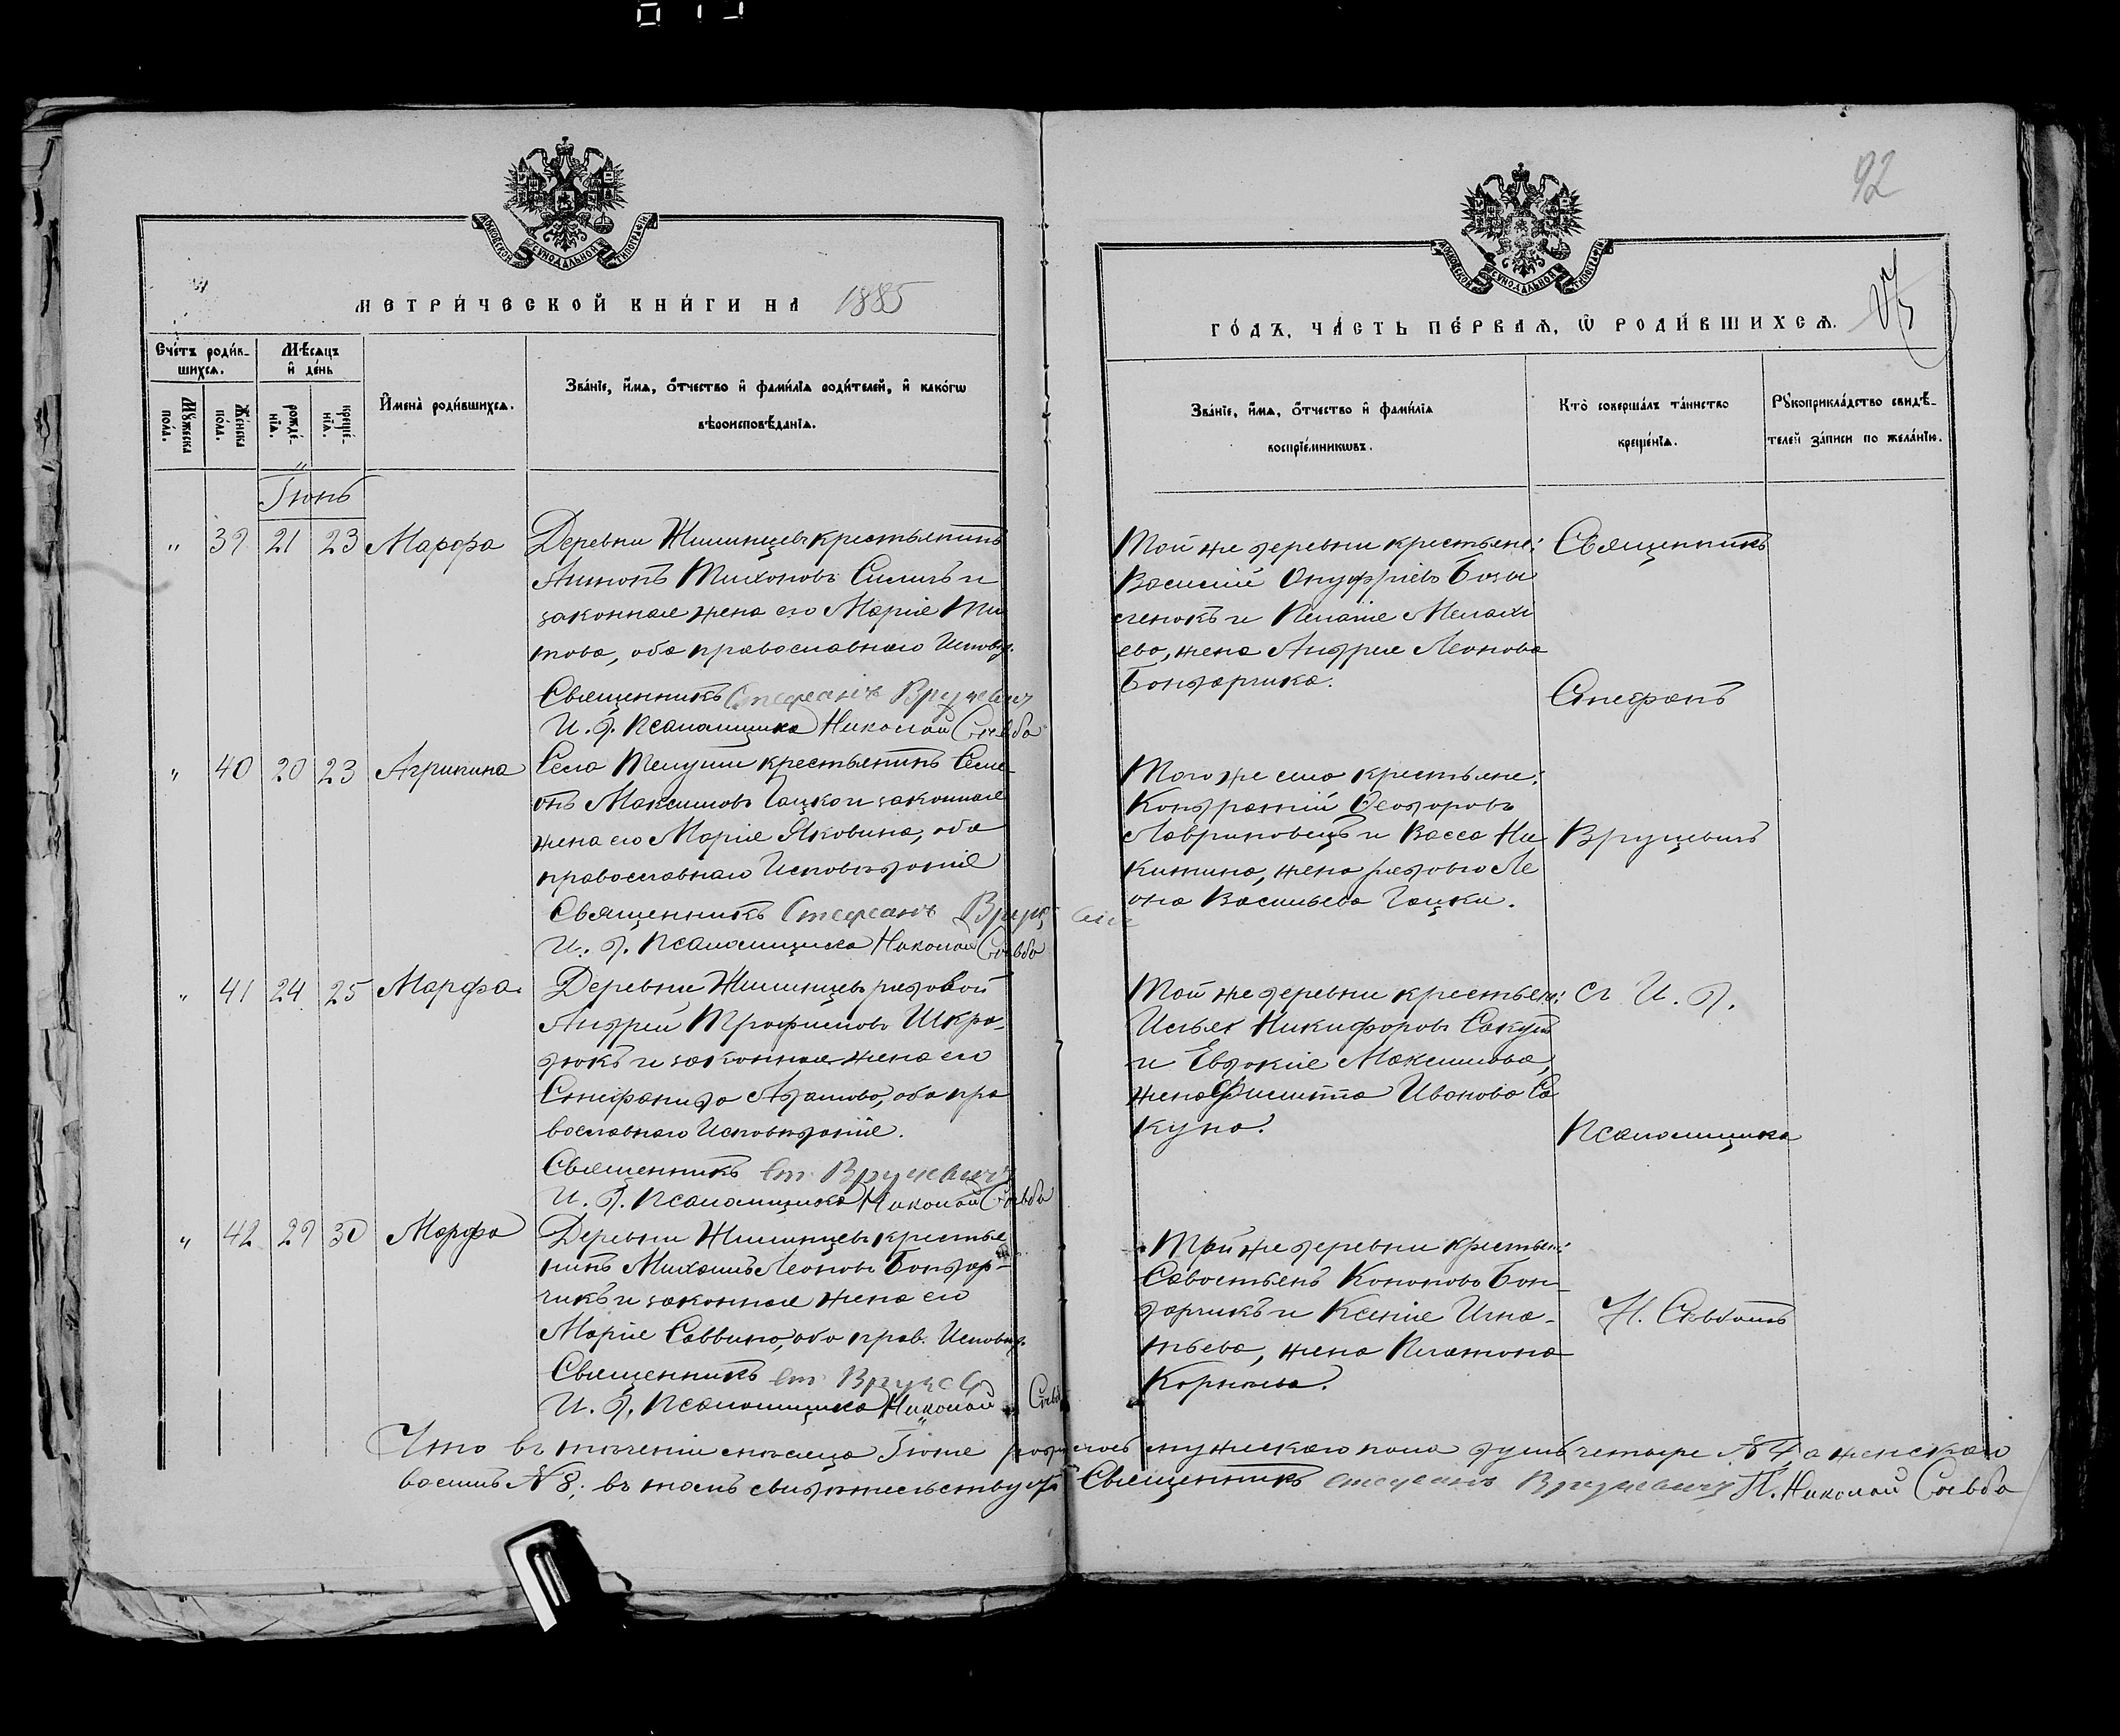 92
МОСКОВСКОЙ СѴНОДАЛЬНОЙ ТИПОГРАФІИ
МОСКОВСКОЙ СѴНОДАЛЬНОЙ ТИПОГРАФІИ
МЕТРИ́ЧЕСКОЙ КНИ́ГИ НА 1885
ГО́ДЪ, ЧА́СТЬ ПЕ́РВАѦ, Ѡ РОДИ́ВШИХСѦ.
Сче́тъ роди́в-
шихсѧ.
Мѣ́сѧцъ
и҆ де́нь
Мꙋ́жеска
по́ла.
Же́нска
по́ла.
рожде́-
нїѧ.
креще́-
нїѧ.
И҆мена̀ роди́вшихсѧ.
Зва́нїе, и҆́мѧ, ѻ҆́тчество и҆ фами́лїѧ роди́телей, и҆ како́гѡ
вѣроисповѣ́данїѧ.
Зва́нїе, и҆́мѧ, ѻ҆́тчество и҆ фами́лїѧ
воспрїе́мникѡвъ.
Кто̀ соверша́лъ та́инство
креще́нїѧ.
Рꙋкоприкла́дство свидѣ́-
телей за́писи по жела́нїю.
Іюнь
" 39 21 23 Марфа
Деревни Жилинцевъ крестьянинъ
Антонъ Тихоновъ Силичъ и
законная жена его Марія Ти
това, оба православнаго Исповѣд.
Священникъ Стефанъ Вруцевич
И. д. псаломщика Николай
Той же деревни крестьяне:
Василій Онуфріевъ
и Пелагія
ева, жена Андрея Леонова
Бондарчика.
Священникъ
Стефанъ
" 40 20 23 Агрипина
Села Телуши крестьянинъ Семе-
онъ Максимовъ Гацко и законная
жена его Марія Яковина, оба
православнаго Исповѣданія
Священникъ Стефанъ Вруцевич
И. д. псаломщика Николай
Того же села крестьяне:
Кондратій Ѳеодоровъ
Лавриновецъ и Васса Ни
китина, жена рядового Ле
она Васильева Гацки.
Вруцевичъ
" 41 24 25 Марфа.
Деревни Жилинцевъ рядовой
Андрей Трофимовъ Шкра-
дюкъ и законная жена его
Стефанида Адамова, оба пра
вославнаго Исповѣданія.
Священникъ Ст. Вруцевичъ
И. д. псаломщика Николай
Той же деревни крестьян:
Илья Никифоровъ Сакун
и Евдокія Максимова,
жена Филиппа Иванова Са
куна.
съ И. д.
Псаломщика
" 42 29 30 Марфа
Деревни Жилинцевъ крестья
нинъ Михаилъ Леоновъ Бондар-
чикъ и законная жена его
Марія Саввина, оба прав. Исповѣд.
Священникъ Ст.
И. д. псаломщика Николай
Той же деревни крестьян:
Савостьянъ Кононовъ Бон-
дарчикъ и Ксенія Игна-
тьева, жена Платона
Корнѣева.
Н.
Что въ теченіи мѣсяца Іюня родилось мужескаго пола душъ четыре № 4, а женскаго
восемь № 8; въ томъ свидѣтельствуютъ Священникъ Стефанъ Вруцевичъ П. Николай